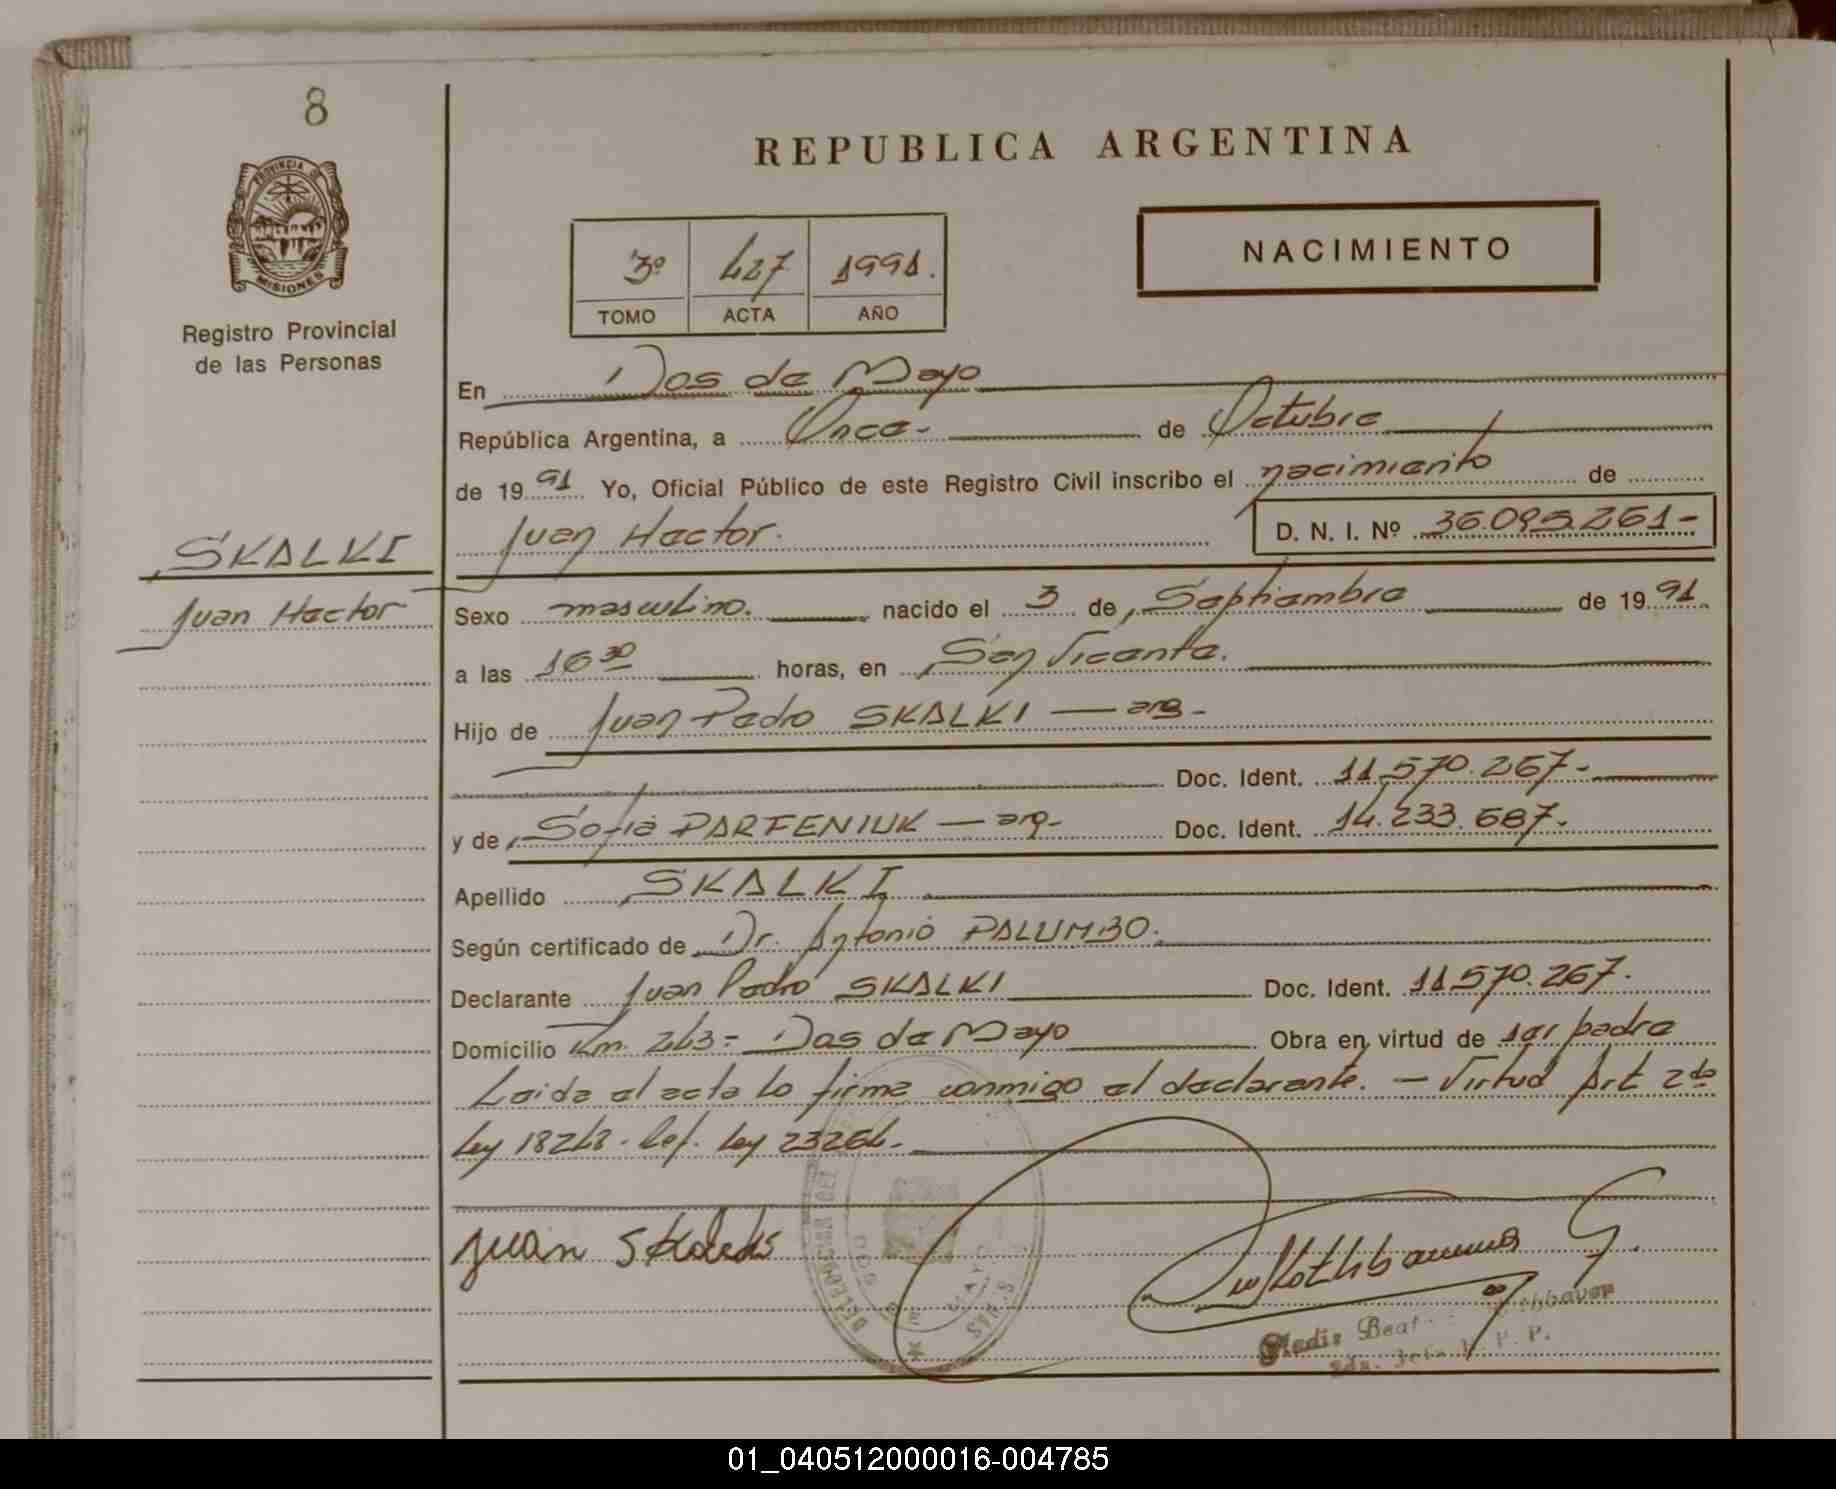 8
REPUBLICA ARGENTINA
PROVINCIA DE
MISIONES
Registro Provincial
de las Personas
3º 427 1991.
TOMO ACTA AÑO
NACIMIENTO
En Dos de Mayo
República Argentina, a Once - de Octubre
de 19 91 Yo, Oficial Público de este Registro Civil inscribo el nacimiento de
Juan Hector. D. N. I. Nº 36.095.261-
SKALKI
Juan Hector
Sexo masculino. nacido el 3 de Septiembre de 19 91.
a las 16 30 horas, en San Vicente.
Hijo de Juan Pedro SKALKI — arg-
Doc. Ident. 11.570.267-
y de Sofia PARFENIUK — arg- Doc. Ident. 14.233.687.
Apellido SKALKI
Según certificado de Dr. Antonio PALUMBO.
Declarante Juan Pedro SKALKI Doc. Ident. 11570.267.
Domicilio Km. 243- Dos de Mayo Obra en virtud de ser padre
Leida el acta lo firma conmigo el declarante. — Virtud Art 2do
Ley 18248. Ref. Ley 23264-
Juan Skalski
DELEGACION DEL
DOS DE MAYO
Gladis Beat
P. P.
01_040512000016-004785